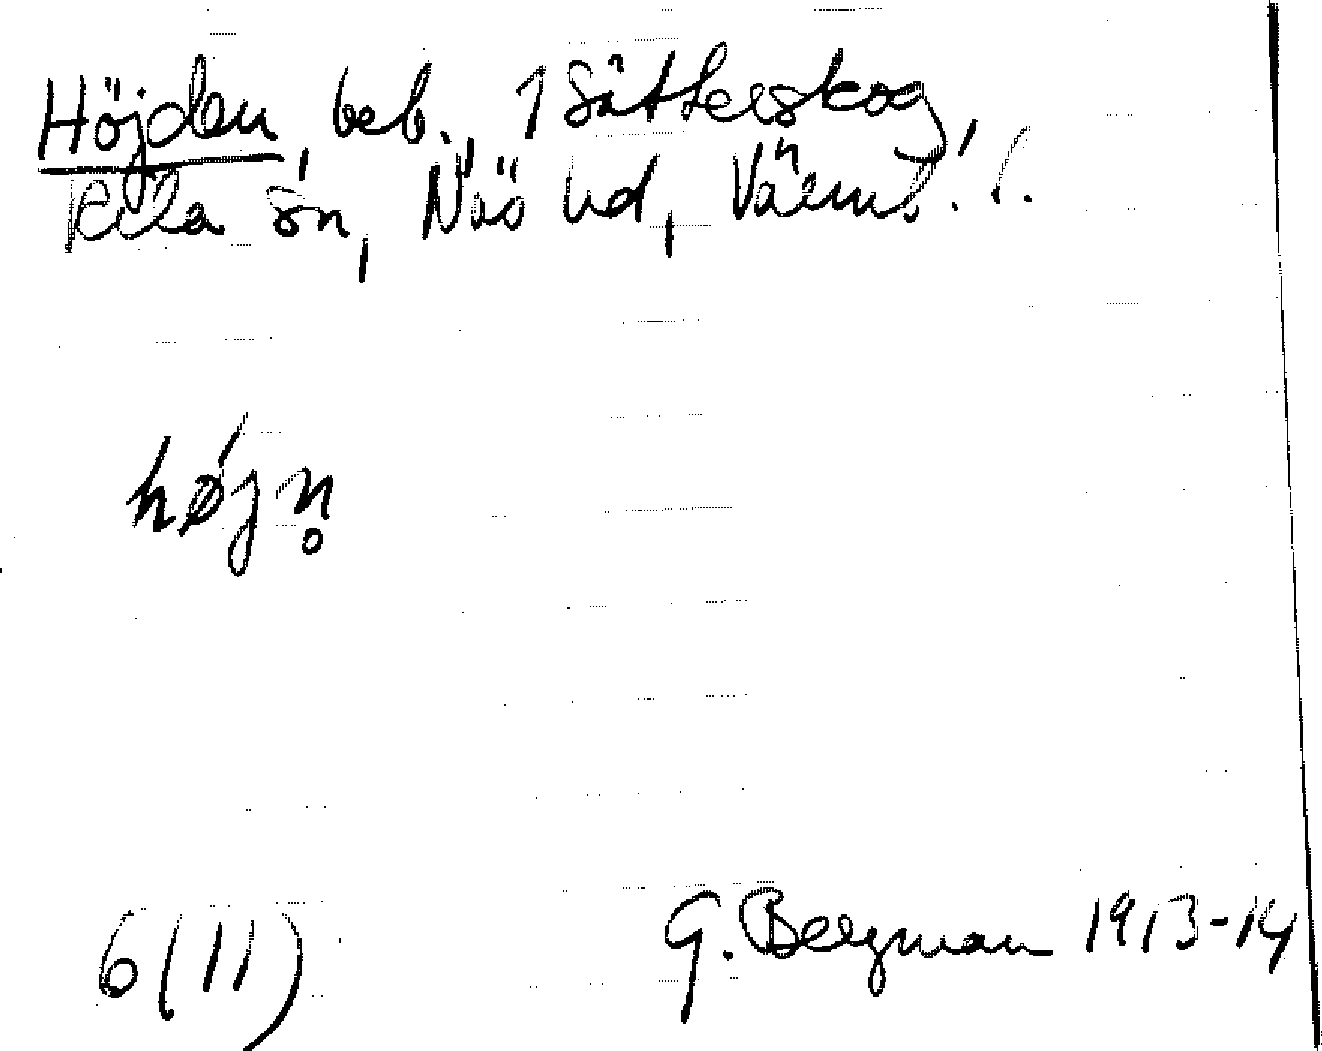 Höjden, beb., 1 Sätterskog,
Kila sn, Näs hd, Värml. l.
høj́n̥
6(11) G. Bergman 1913-14